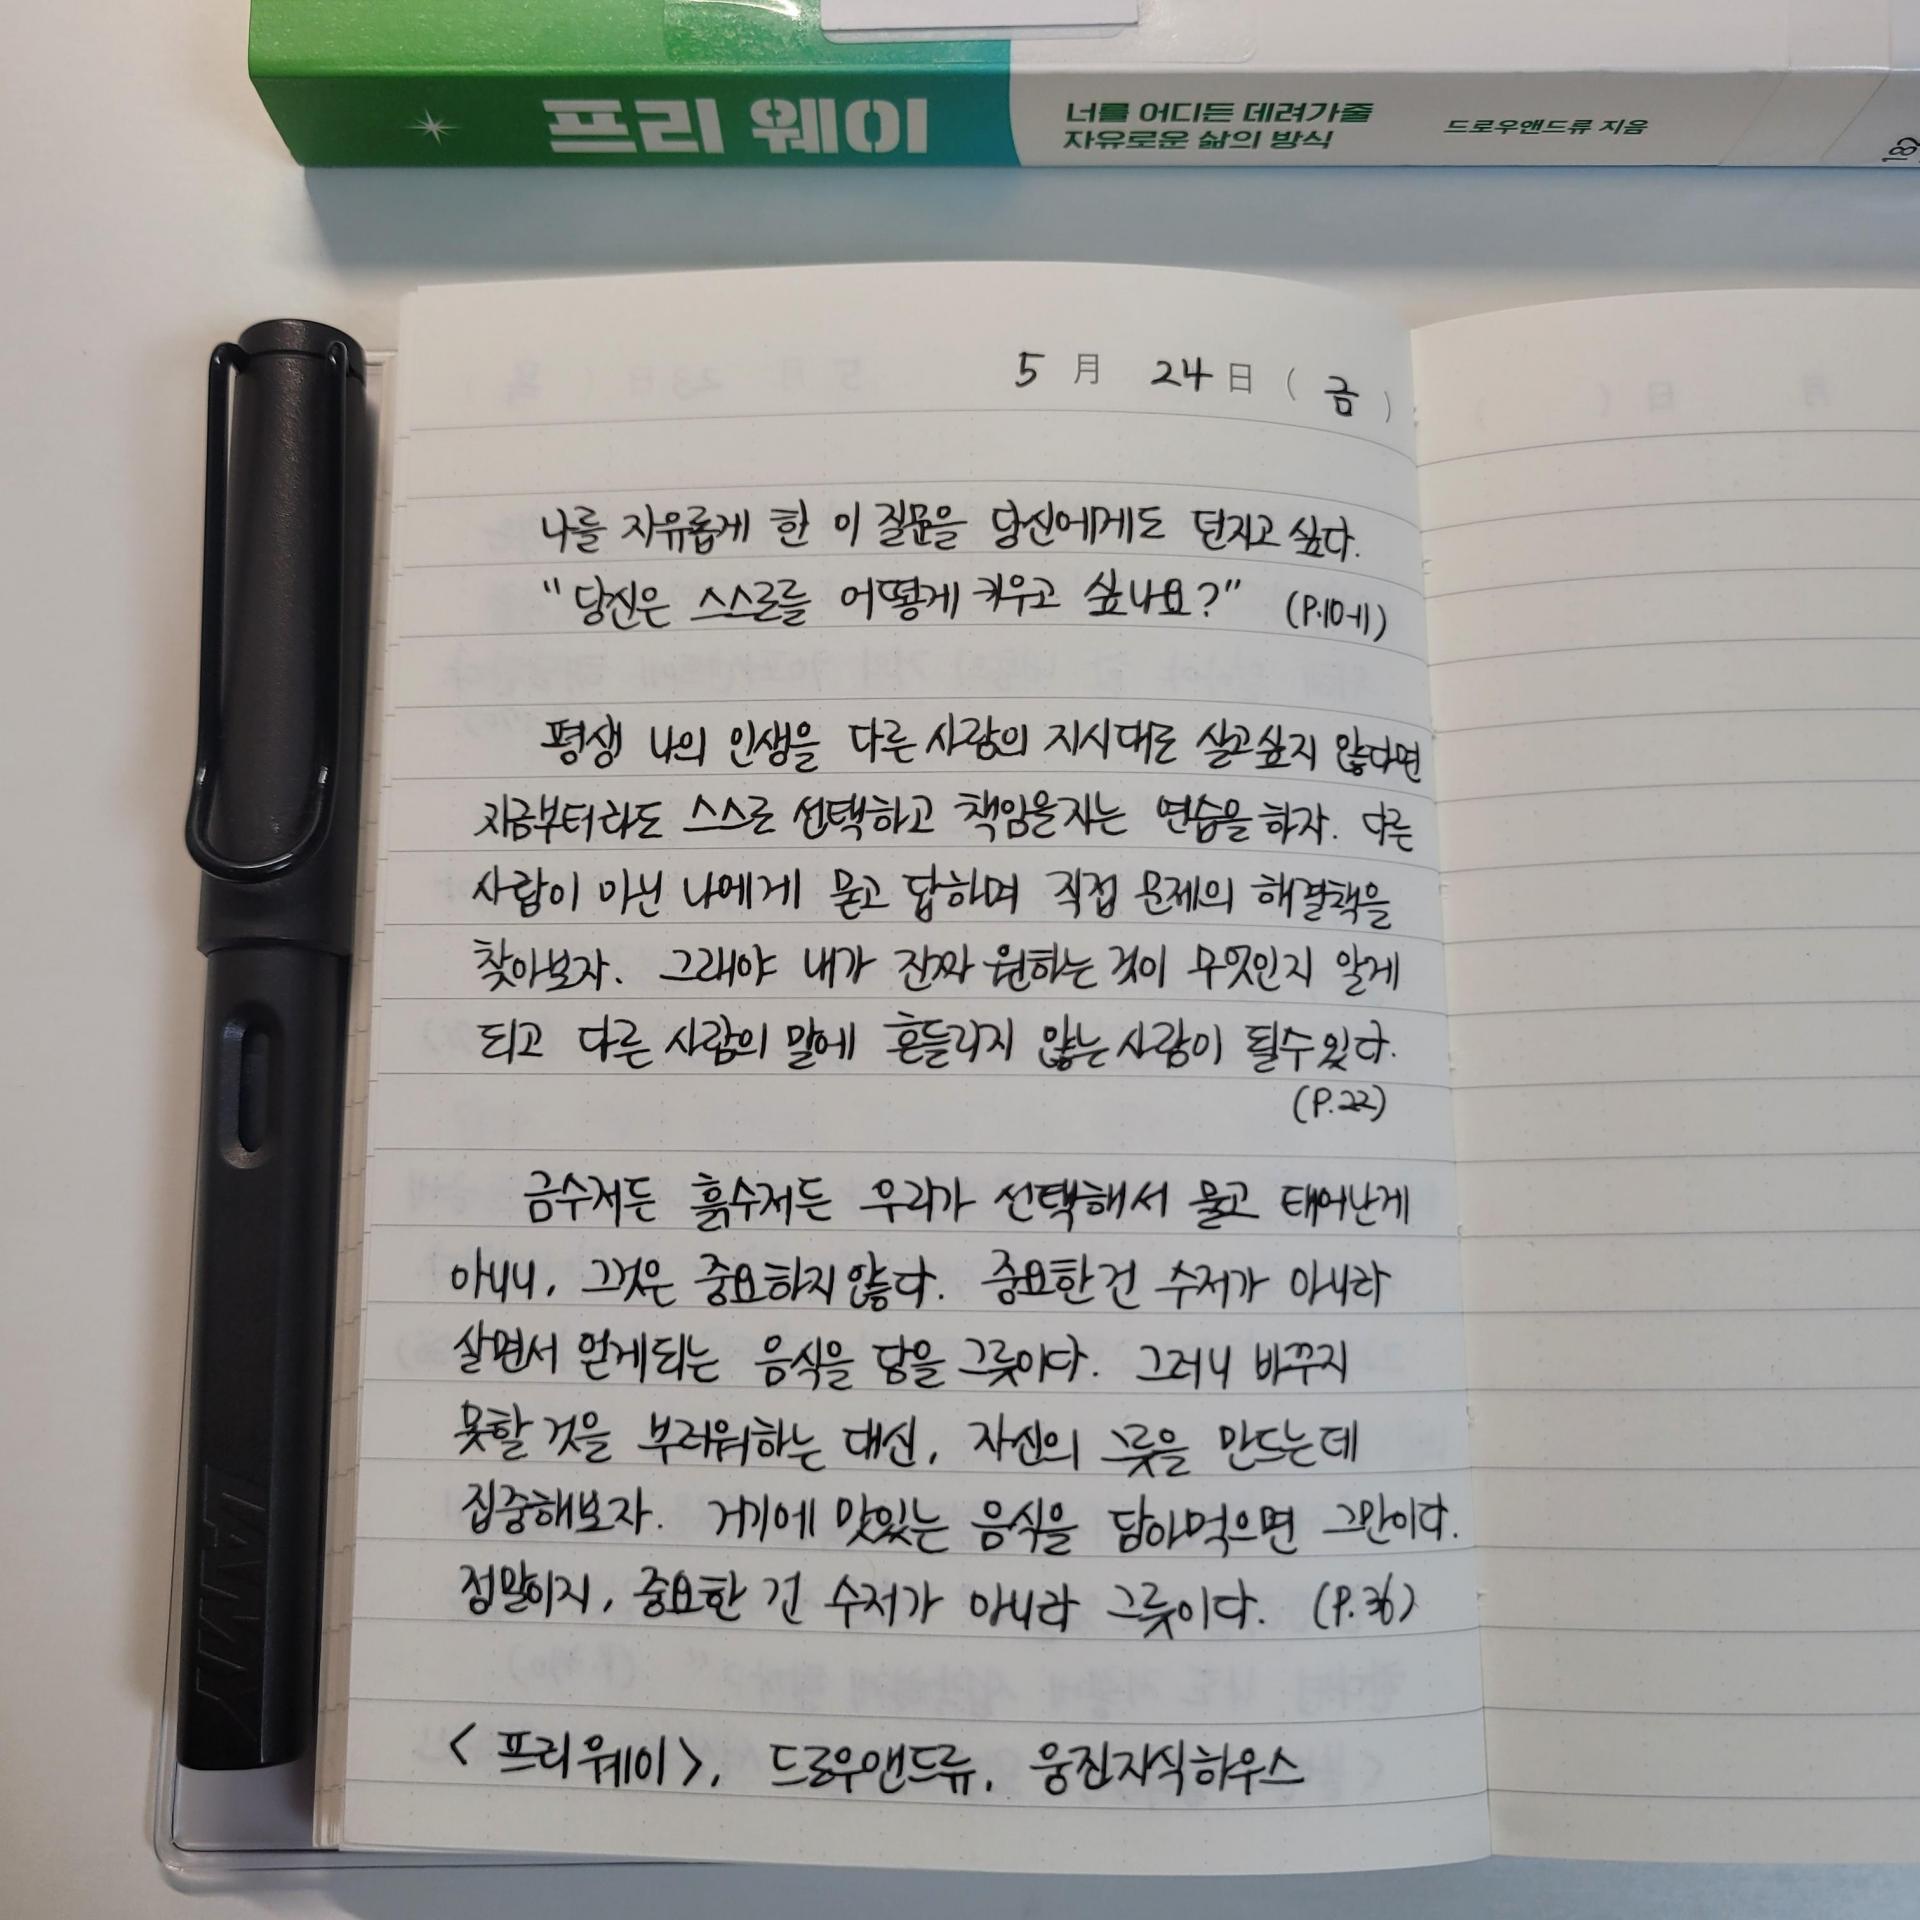 프리 웨이
너를 어디든 데려가줄
자유로운 삶의 방식
드로우앤드류 지음
5 月 24 日 ( 금 )
나를 자유롭게 한 이 질문을 당신에게도 던지고 싶다.
"당신은 스스로를 어떻게 키우고 싶나요?" (P.10-11)
평생 나의 인생을 다른 사람의 지시대로 살고싶지 않다면
지금부터라도 스스로 선택하고 책임을지는 연습을 하자. 다른
사람이 아닌 나에게 묻고 답하며 직접 문제의 해결책을
찾아보자. 그래야 내가 진짜 원하는 것이 무엇인지 알게
되고 다른 사람의 말에 흔들리지 않는 사람이 될수있다.
(P.22)
금수저든 흙수저든 우리가 선택해서 물고 태어난게
아니니, 그것은 중요하지 않다. 중요한건 수저가 아니라
살면서 얻게되는 음식을 담을 그릇이다. 그러니 바꾸지
못할 것을 부러워하는 대신, 자신의 그릇을 만드는데
집중해보자. 거기에 맛있는 음식을 담아먹으면 그만이다.
정말이지, 중요한 건 수저가 아니라 그릇이다. (P.36)
<프리웨이>, 드로우앤드류, 웅진지식하우스
LAMY